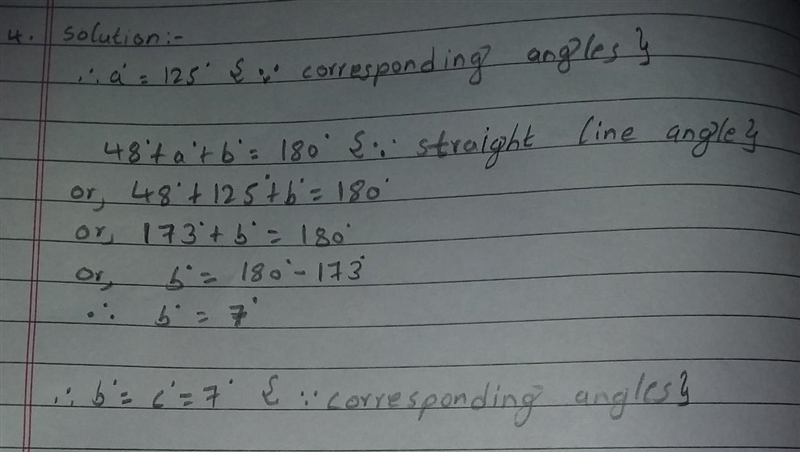 4. Solution:-
∴ a° = 125° {∵ corresponding angles}
48°+a°+b° = 180° {∵ straight line angle}
or, 48°+125°+b° = 180°
or, 173°+b° = 180°
or, b° = 180°-173°
∴ b° = 7°
∴ b° = c° = 7° {∵ corresponding angles}